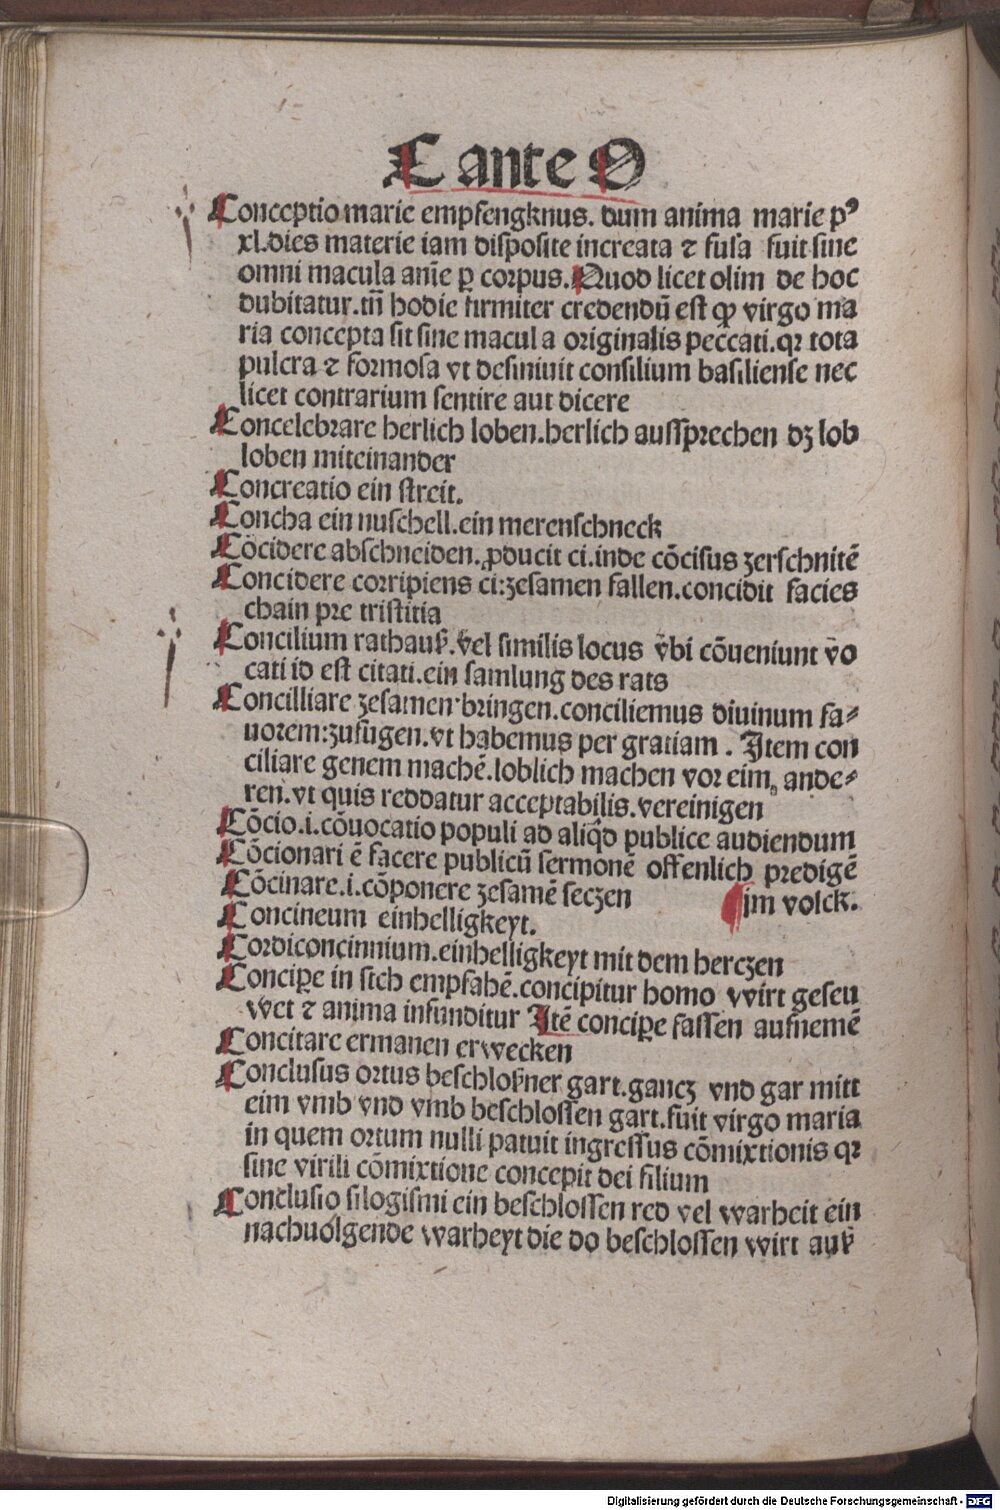 C ante O
Conceptio marie empfengknus. dum anima marie pꝰ
xl.dies materie iam disposite increata ⁊ fusa fuit sine
omni macula anīe ꝑ corpus. Quod licet olim de hoc
dubitatur.tn̄ hodie firmiter credendū est ꝙ virgo ma
ria concepta sit sine macula originalis peccati.qꝛ tota
pulcra ⁊ formosa vt definiuit consilium basiliense nec
licet contrarium sentire aut dicere
Concelebrare herlich loben.herlich aufsprechen dz lob
loben miteinander
Concreatio ein streit.
Concha ein nuschell.ein merenschneck
Cōcidere abschneiden.ꝓducit ci.inde cōcisus zerschnitē
Concidere corripiens ci:zesamen fallen.concidit facies
chain pre tristitia
Concilium rathauß.vel similis locus vbi cōueniunt vo
cati id est citati.ein samlung des rats
Concilliare zesamen bringen.conciliemus diuinum fa⸗
uorem:zufügen.vt habemus per gratiam . Item con
ciliare genem machē.loblich machen vor eim ande⸗
ren.vt quis reddatur acceptabilis.vereinigen
Cōcio.i.cōuocatio populi ad aliqd̄ publice audiendum
Cōcionari ē facere publicū sermonē offenlich predigē
Cōcinare.i.cōponere zesamē seczen im volck.
Concineum einhelligkeyt.
Cordiconcinnium.einhelligkeyt mit dem herczen
Concipe in sich empfahē.concipitur homo wirt geseu
wet ⁊ anima infunditur Itē concipe fassen aufnemē
Concitare ermanen erwecken
Conclusus ortus beschloßner gart.gancz vnd gar mitt
eim vmb vnd vmb beschlossen gart.fuit virgo maria
in quem ortum nulli patuit ingressus cōmixtionis qꝛ
sine virili cōmixtione concepit dei filium
Conclusio silogismi ein beschlossen red vel warheit ein
nachuolgende warheyt die do beschlossen wirt auß
Digitalisierung gefördert durch die Deutsche Forschungsgemeinschaft - DFG